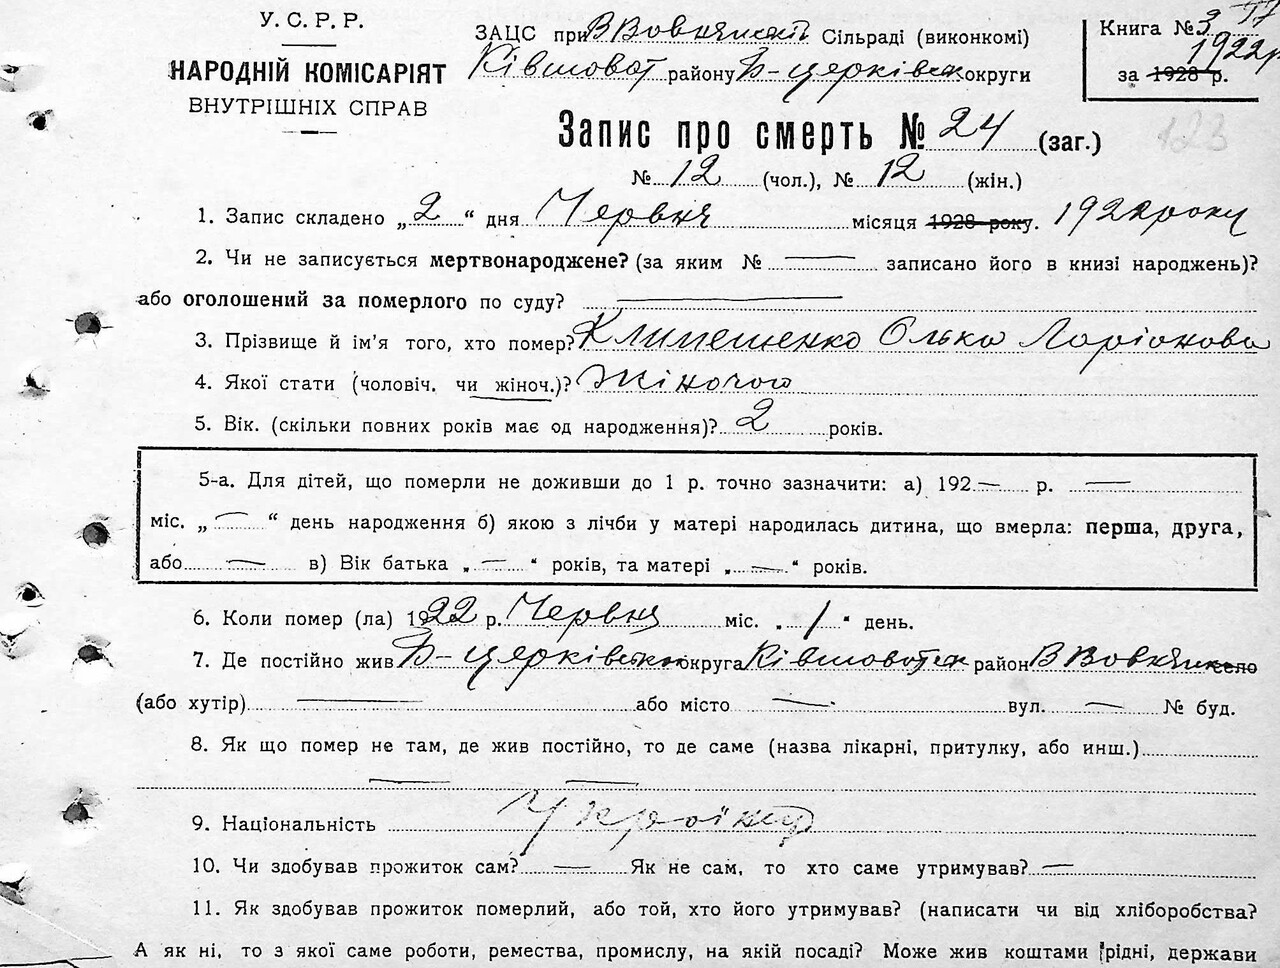 У. С. Р. Р.
НАРОДНІЙ КОМІСАРІЯТ
ВНУТРІШНІХ СПРАВ
ЗАЦС при В Вовнянській Сільраді (виконкомі)
Ківшоват району Б-церківськ округи
Книга № 3
1922 р
за 1928 р.
123
Запис про смерть № 24 (заг.)
№ 12 (чол.), № 12 (жін.)
1. Запис складено „2“ дня Червня місяця 1928 року. 1922 року
2. Чи не записується мертвонароджене? (за яким № — записано його в книзі народжень)?
або оголошений за померлого по суду? —
3. Прізвище й ім'я того, хто помер? Климешенко Олька Ларіонова
4. Якої стати (чоловіч. чи жіноч.)? Жіночою
5. Вік. (скільки повних років має од народження)? 2 років.
5-а. Для дітей, що померли не доживши до 1 р. точно зазначити: а) 192 — р. —
міс. „ — “ день народження б) якою з лічби у матері народилась дитина, що вмерла: перша, друга,
або — в) Вік батька „ — “ років, та матері „ — “ років.
6. Коли помер (ла) 1922 р. Червня міс. „ 1 “ день.
7. Де постійно жив Б-церківськ округа Ківшоватськ район В Вовнянк село
(або хутір) — або місто — вул. — № буд.
8. Як що помер не там, де жив постійно, то де саме (назва лікарні, притулку, або инш.)
— —
9. Національність Україн
10. Чи здобував прожиток сам? — Як не сам, то хто саме утримував? —
11. Як здобував прожиток померлий, або той, хто його утримував? (написати чи від хліборобства?
А як ні, то з якої саме роботи, ремества, промислу, на якій посаді? Може жив коштами рідні, держави